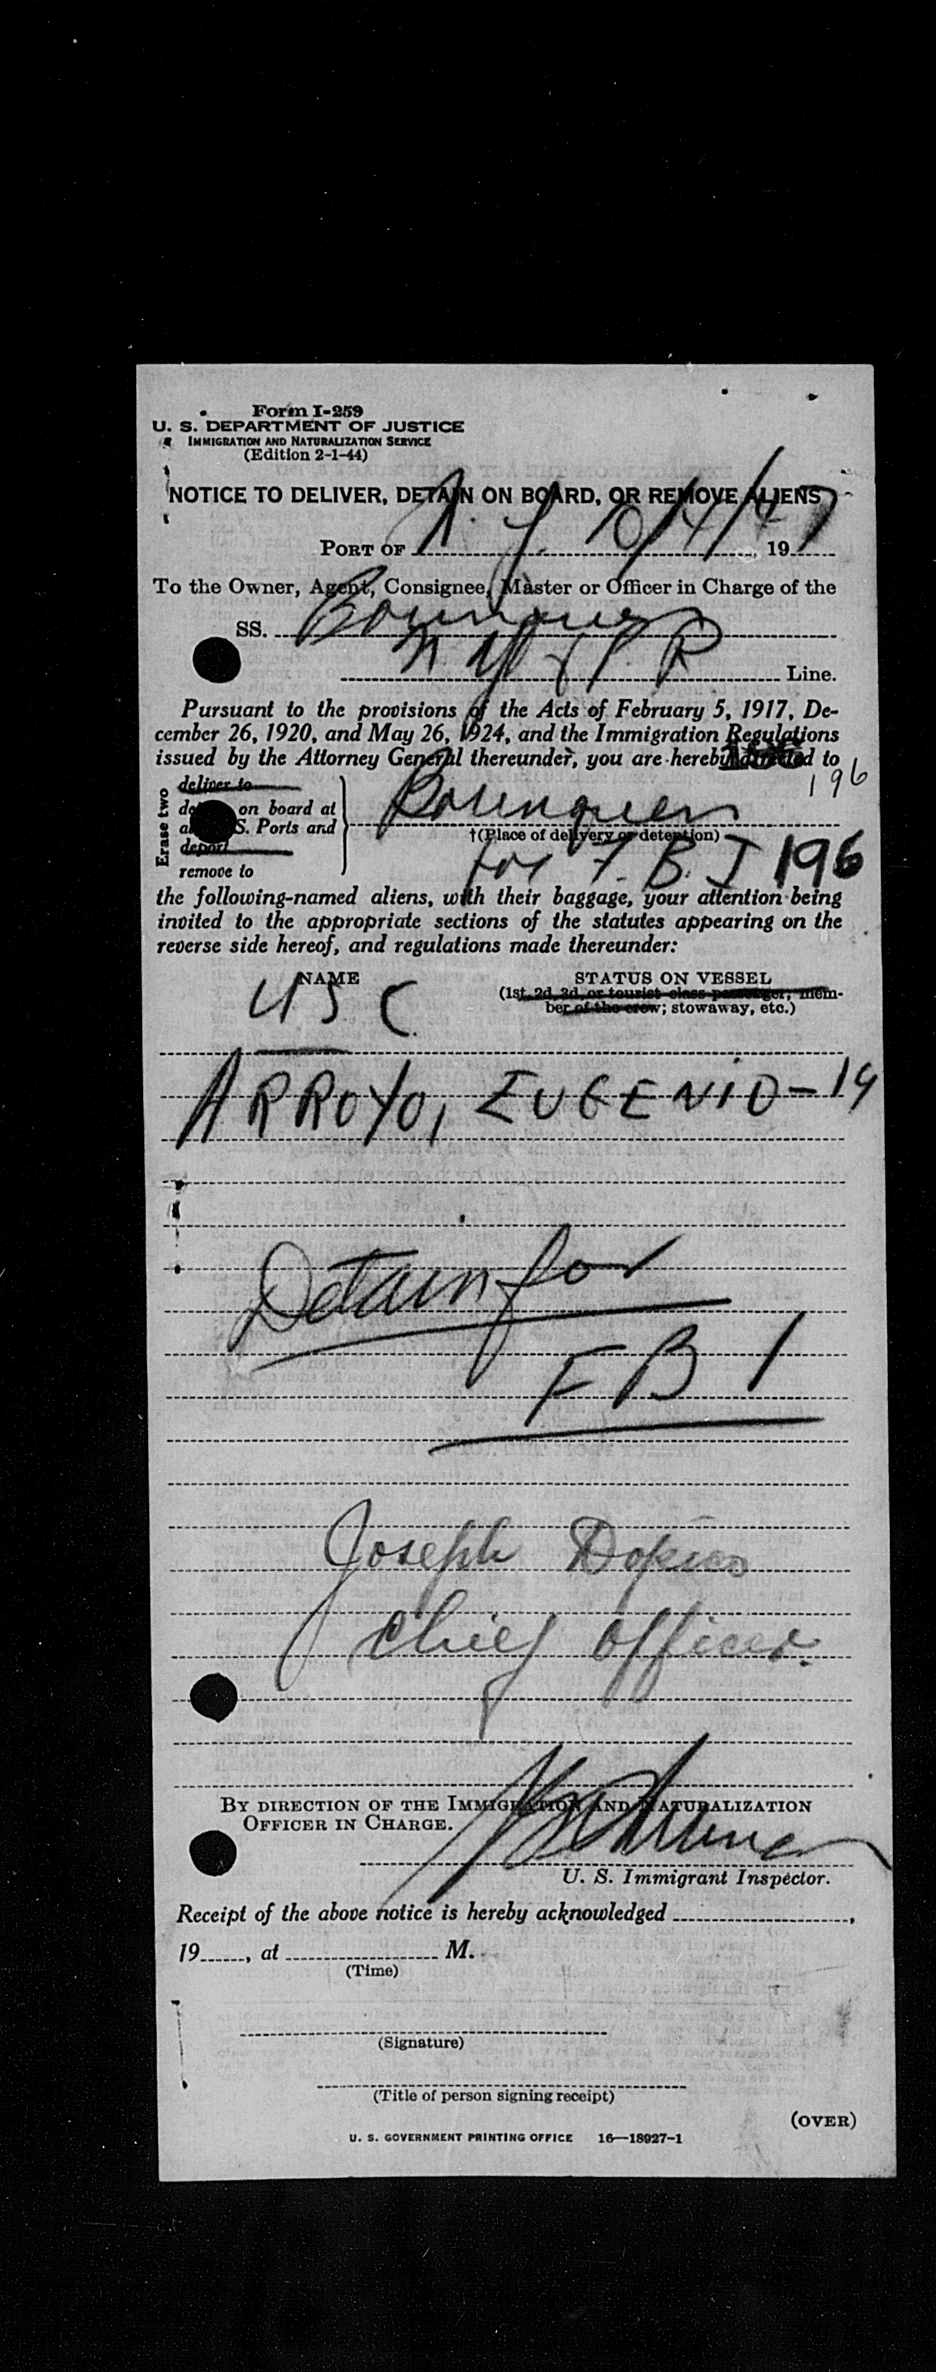 Form I-259
U. S. DEPARTMENT OF JUSTICE
IMMIGRATION AND NATURALIZATION SERVICE
(Edition 2-1-44)
NOTICE TO DELIVER, DETAIN ON BOARD, OR REMOVE ALIENS
PORT OF N.Y. 10/4/47 19
To the Owner, Agent, Consignee, Master or Officer in Charge of the
SS. Borinquen
N Y & P. R Line.
Pursuant to the provisions of the Acts of February 5, 1917, De-
cember 26, 1920, and May 26, 1924, and the Immigration Regulations
issued by the Attorney General thereunder, you are hereby directed to
196
196
Erase two
deliver to
on board at
S. Ports and
deport
remove to
Borinquen
†(Place of delivery or detention)
for F. B. I 196
the following-named aliens, with their baggage, your attention being
invited to the appropriate sections of the statutes appearing on the
reverse side hereof, and regulations made thereunder:
NAME STATUS ON VESSEL
(1st, 2d, 3d, or tourist class passenger; mem-
ber of the crew; stowaway, etc.)
U S C
ARROYO, EUGENIO-19
Detain for
F B I
Joseph
Chief Officer.
BY DIRECTION OF THE IMMIGRATION AND NATURALIZATION
OFFICER IN CHARGE.
U. S. Immigrant Inspector.
Receipt of the above notice is hereby acknowledged ,
19 , at M.
(Time)
(Signature)
(Title of person signing receipt)
(OVER)
U. S. GOVERNMENT PRINTING OFFICE 16—18927-1